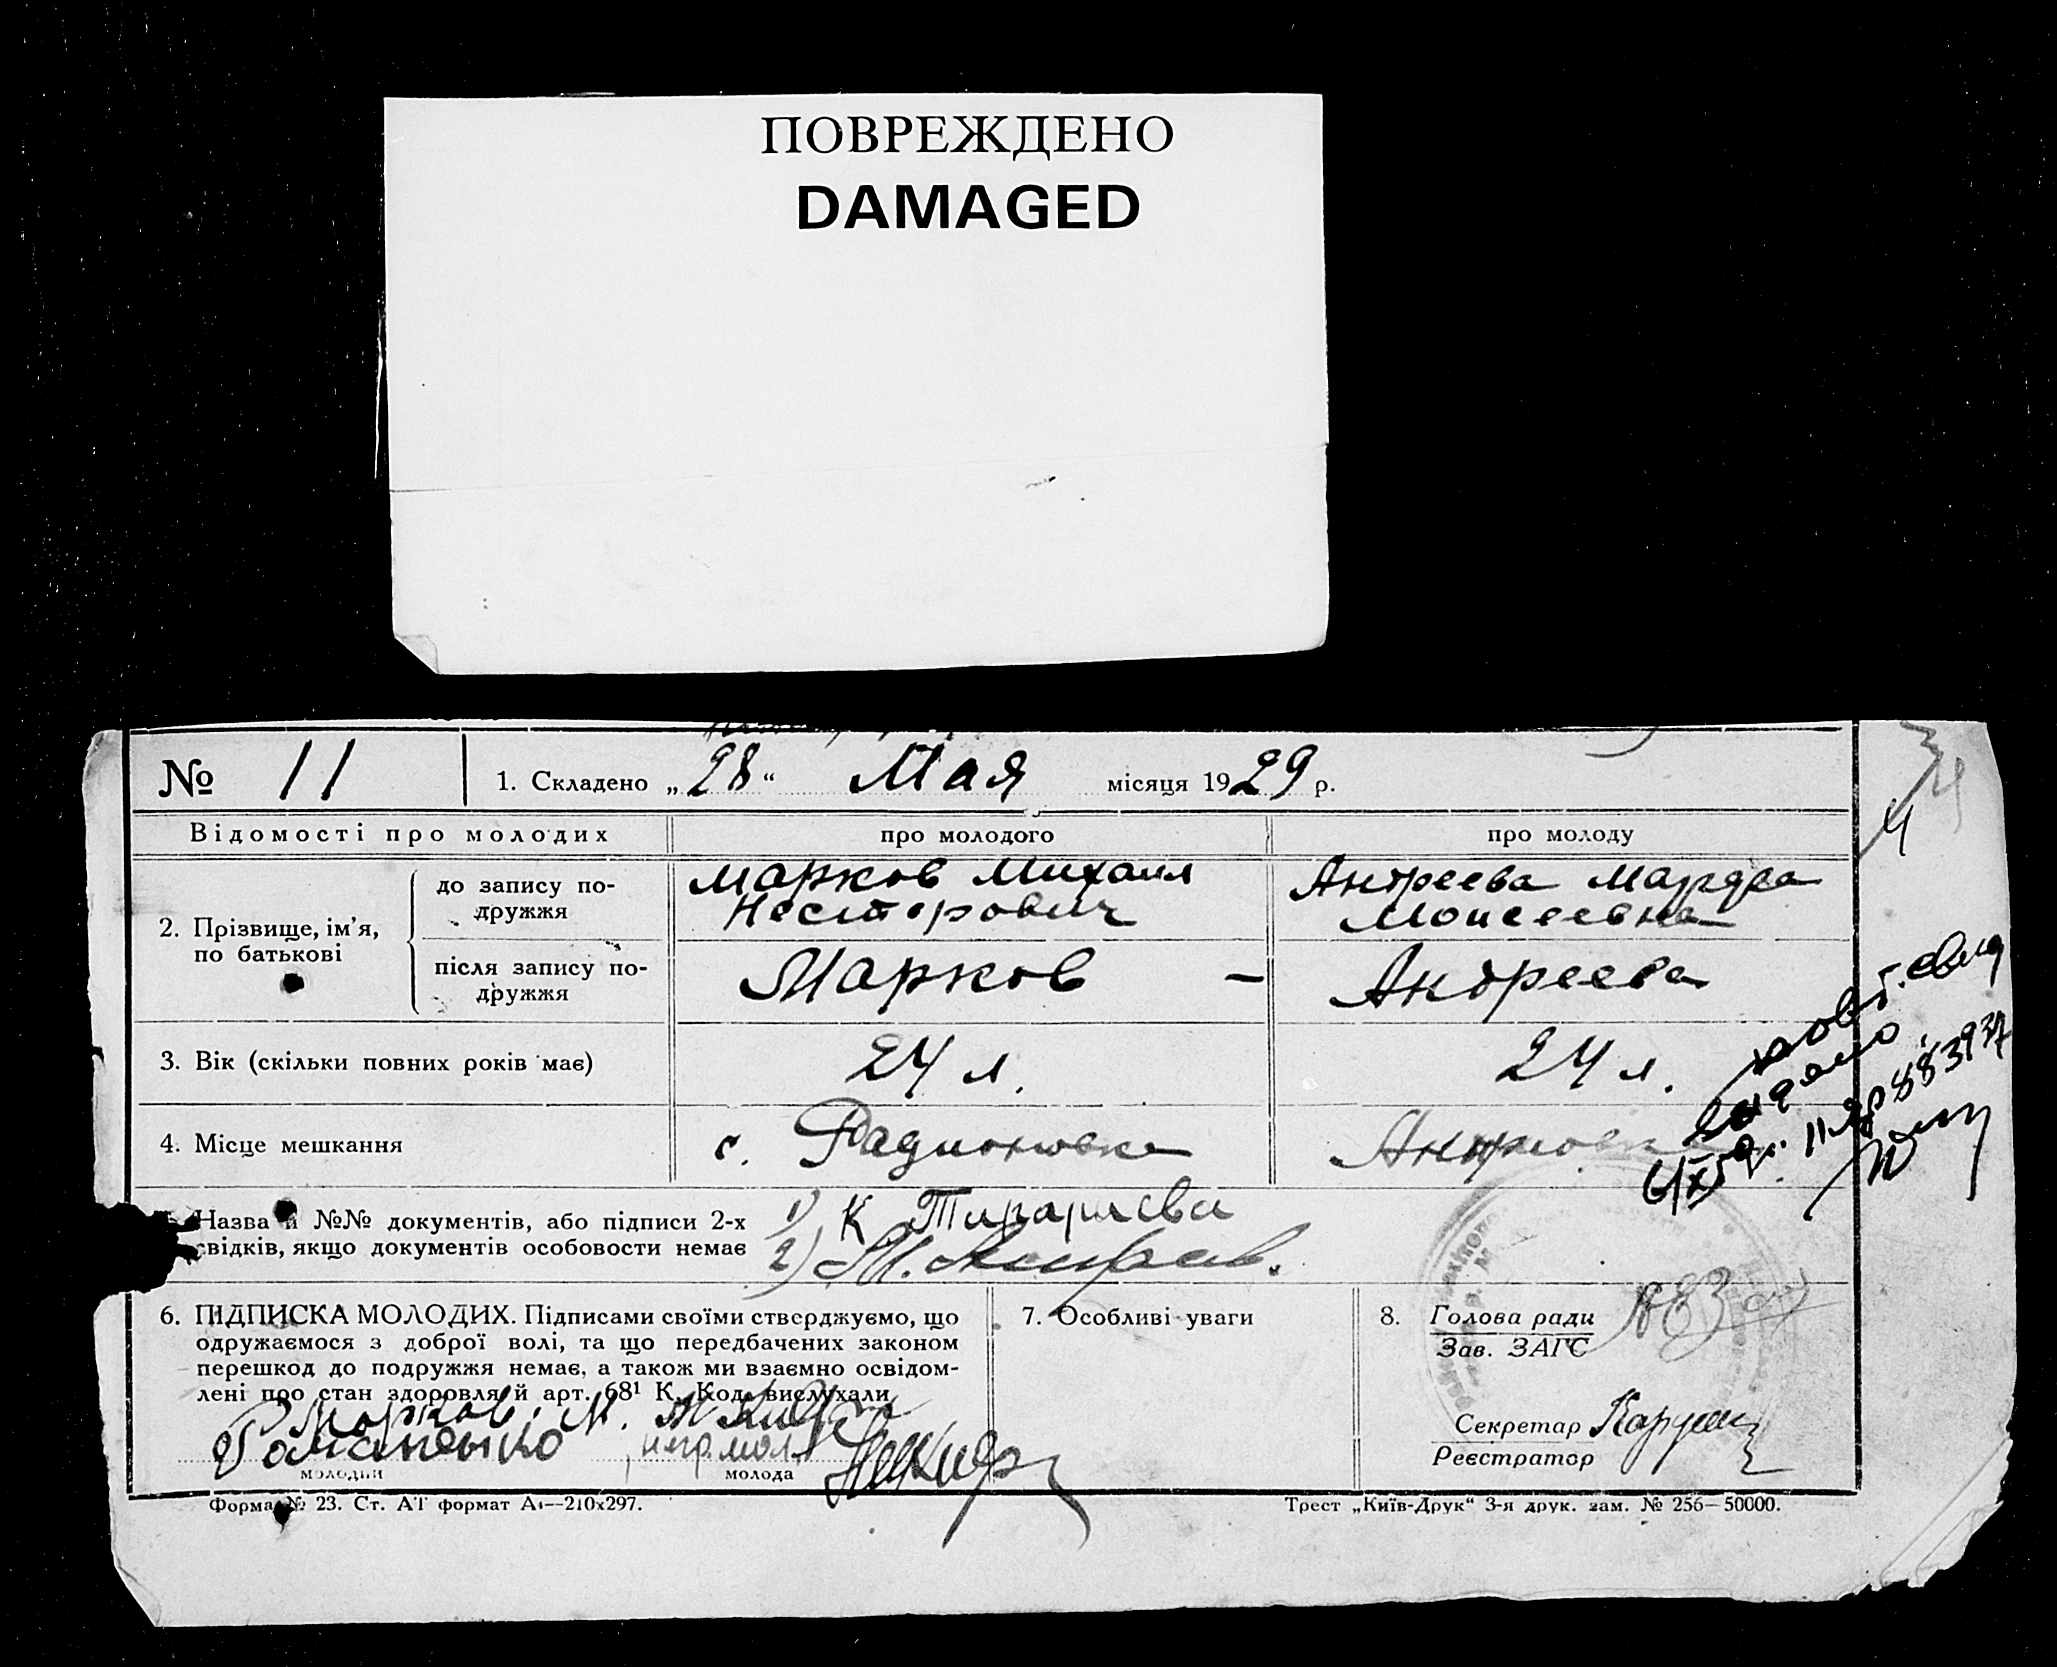 ПОВРЕЖДЕНО
DAMAGED
№ 11
1. Складено „28“ Мая місяця 1929 р.
Відомості про молодих
про молодого
про молоду
2. Прізвище, ім’я,
по батькові
до запису по-
дружжя
Марков Михаил
Несторович
Андреева
Моисеевна
після запису по-
дружжя
Марков –
Андреева
3. Вік (скільки повних років має)
24 л.
24 л.
4. Місце мешкання
с. Радионовка
Назва й №№ документів, або підписи 2-х
свідків, якщо документів особовости немає
1) К.
2) М.
6. ПІДПИСКА МОЛОДИХ. Підписами своїми стверджуємо, що
одружаємося з доброї волі, та що передбачених законом
перешкод до подружжя немає, а також ми взаємно освідом-
лені про стан здоровля й арт. 68¹ К. Код. вислухали
Марков. М.
Романенко
молодий
молода
7. Особливі уваги
8. Голова ради
Зав. ЗАГС
Секретар
Реєстратор
повт. свид
выдано
Форма № 23. Ст. АТ формат А4—210х297.
Трест „Київ-Друк“ 3-я друк. зам. № 256—50000.